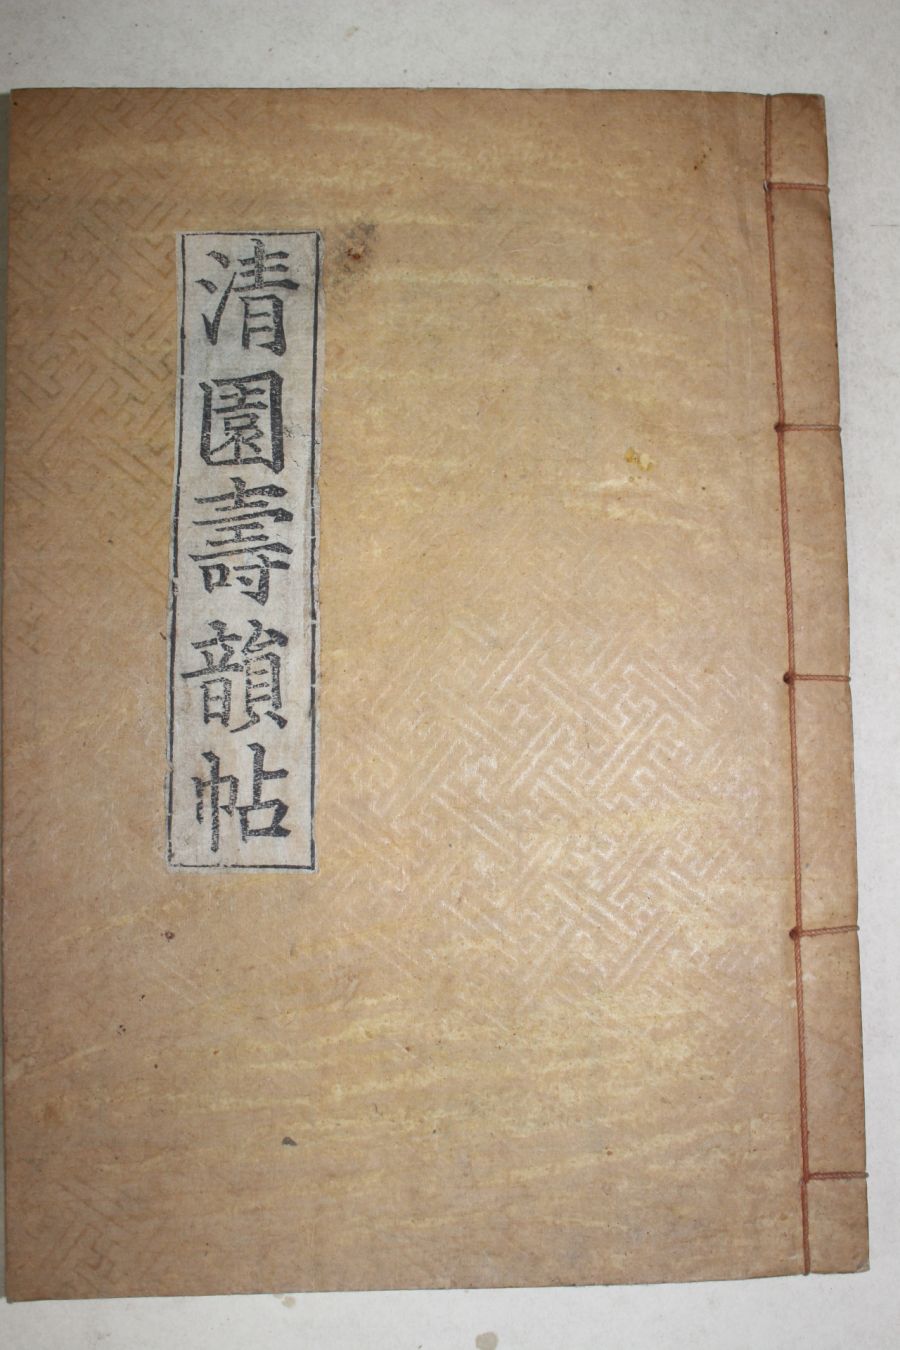 清園壽韻帖